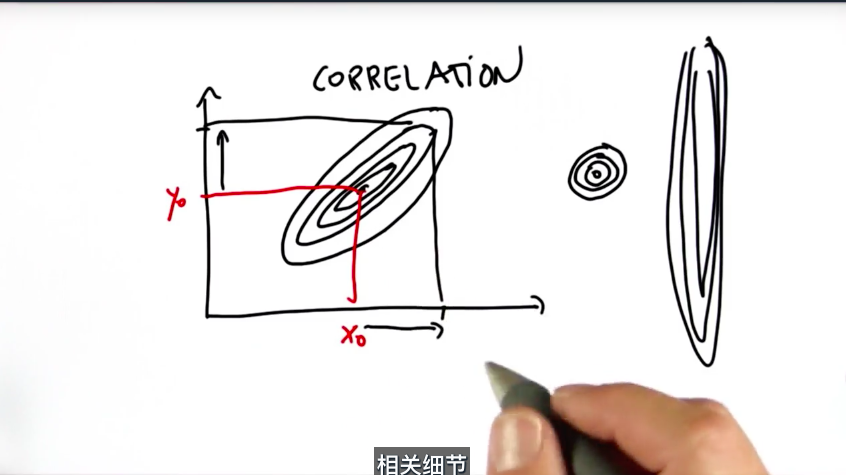 CORRELATION
y₀
x₀
相关细节